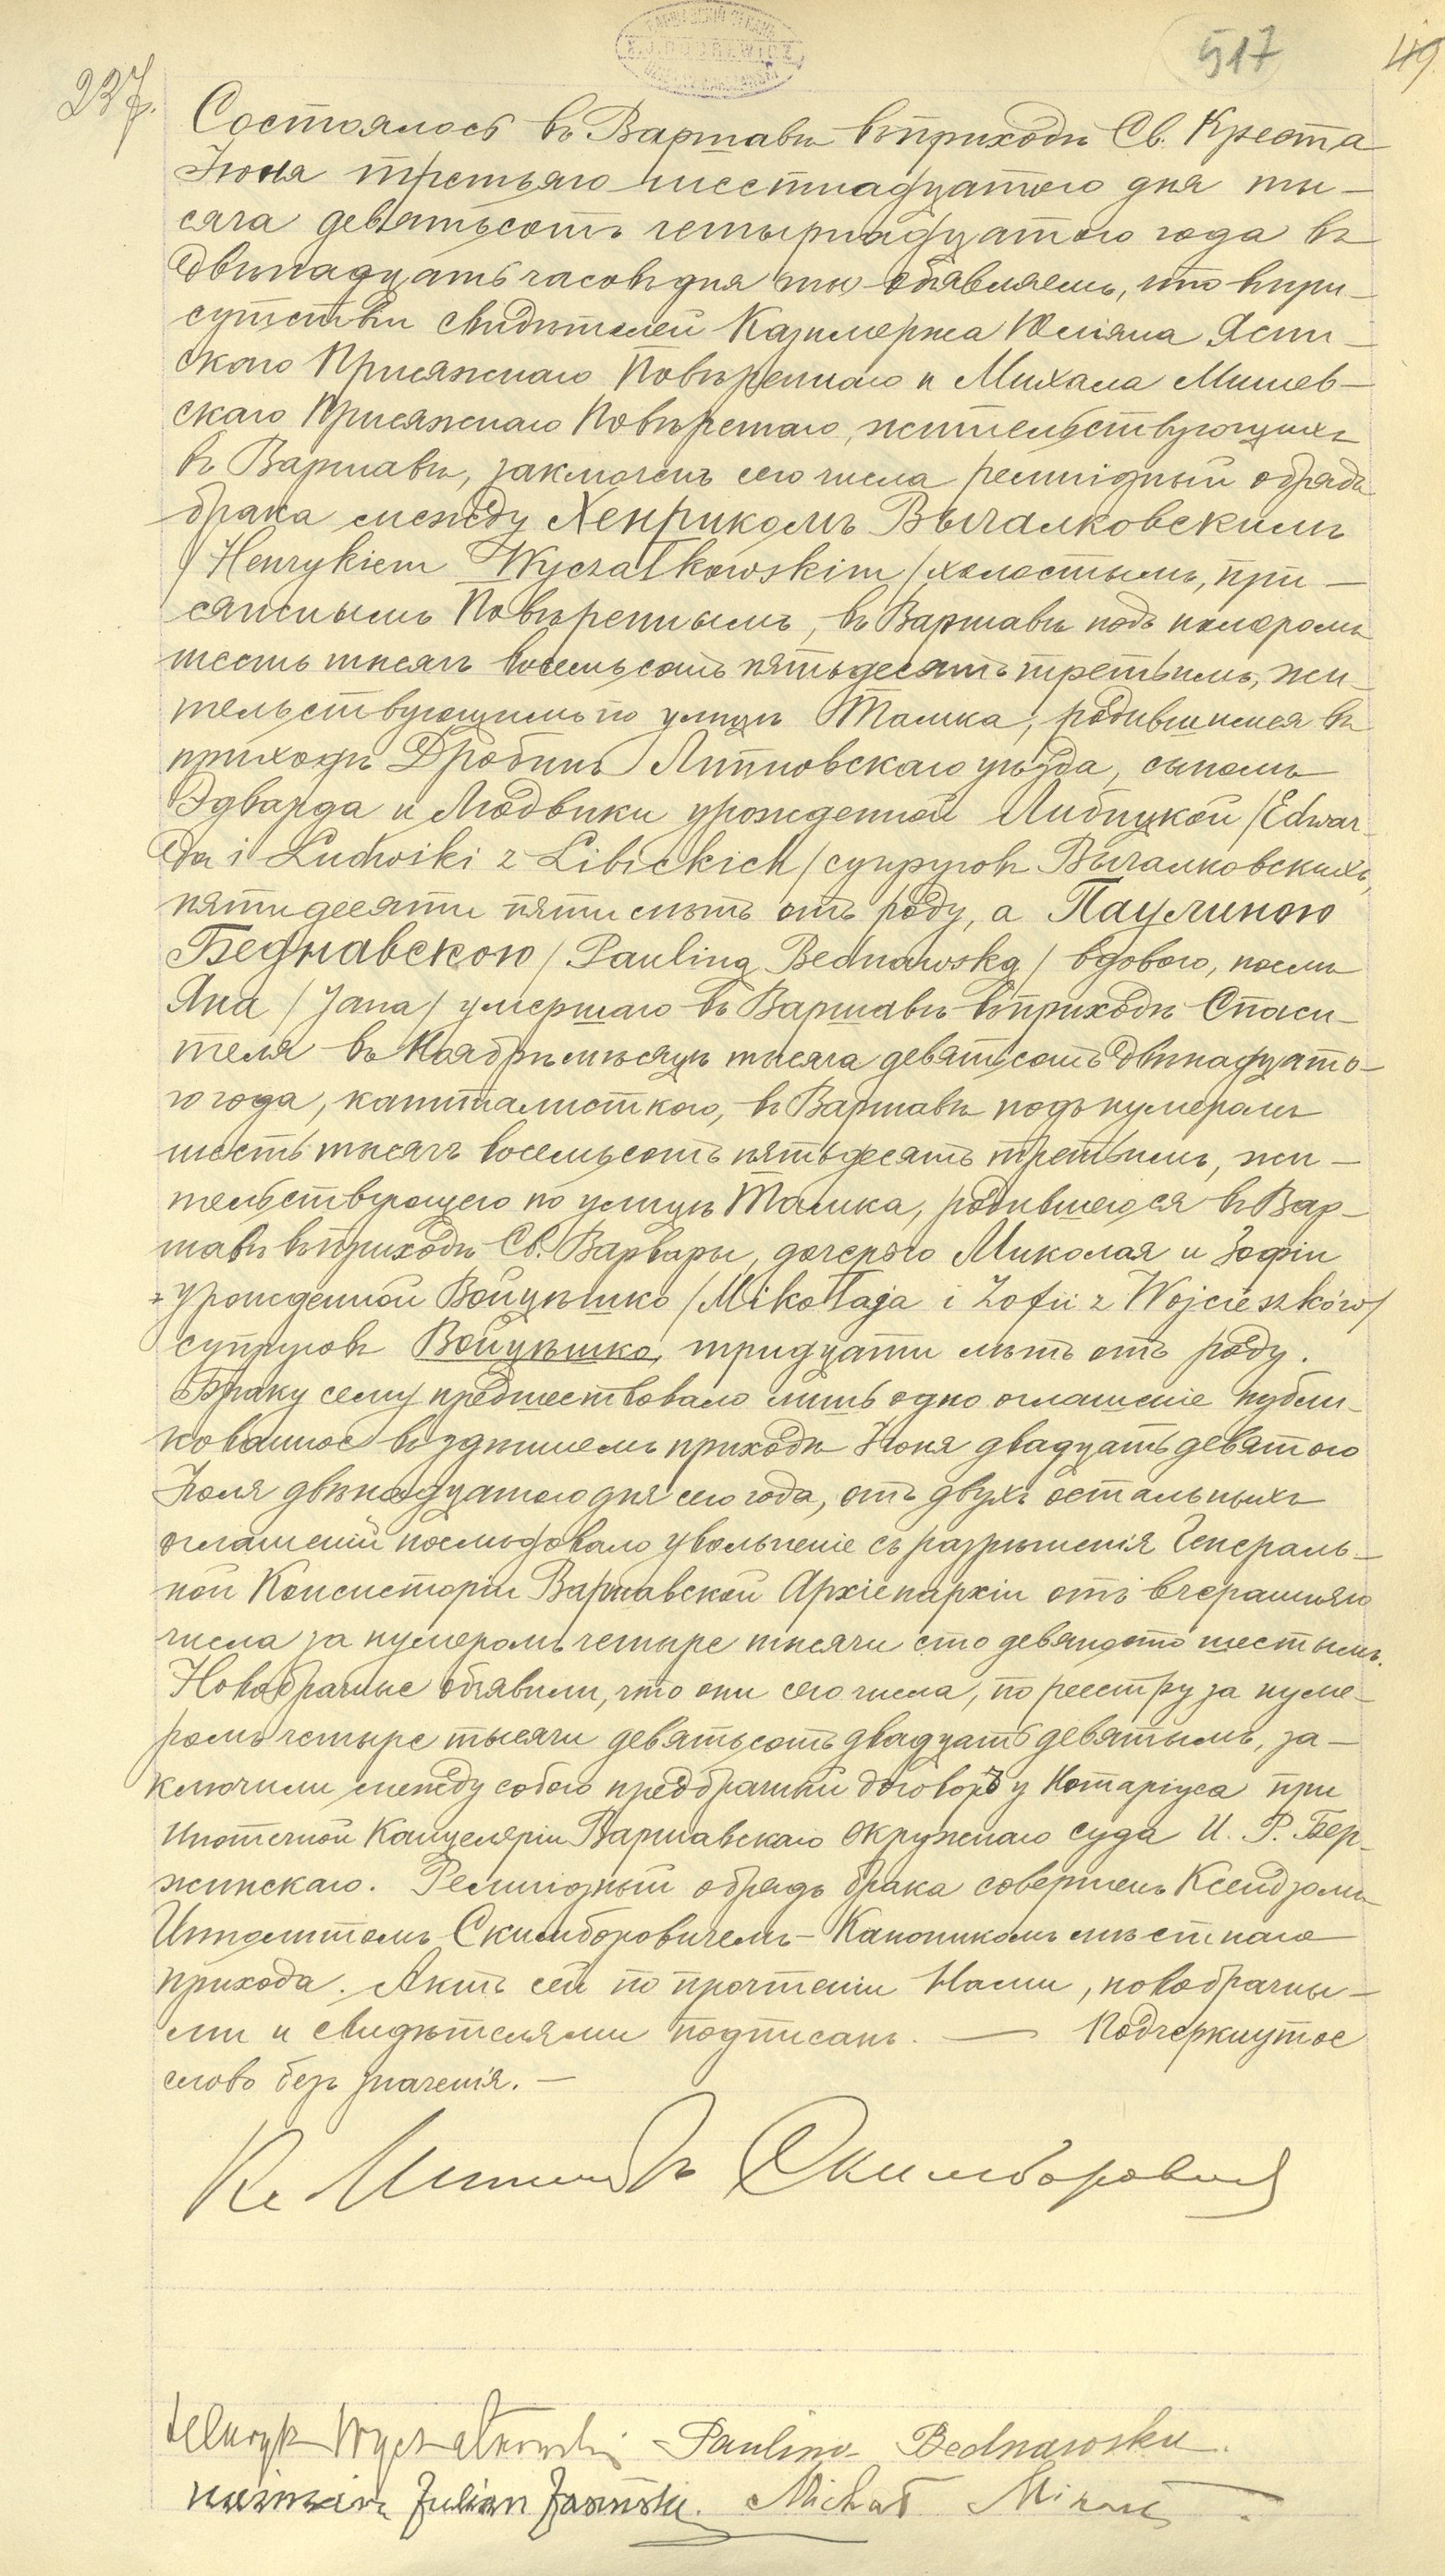 517
49
237.
Состоялось въ Варшавѣ въ приходѣ Св. Креста
Іюня третьяго шестнадцатого дня ты-
сяча девятьсотъ четырнадцатого года въ
двѣнадцать часовъ дня мы объявляемъ, что въ при-
сутствіи свидѣтелей Казимержа Юліяна Ясин-
ского Присяжнаго Повѣреннаго и Михала
скаго Присяжнаго Повѣреннаго, жительствующихъ
въ Варшавѣ, заключенъ сего числа религіозный обрядъ
брака между Хенрикомъ Вычалковскимъ
/Henrykiem Wyczałkowskim/ холостымъ, при-
сяжнымъ Повѣреннымъ, въ Варшавѣ подъ номеромъ
шесть тысячъ восемьсотъ пятьдесятъ третьимъ, жи-
тельствующимъ по улицѣ Тамка, родившимся въ
приходѣ Дробинъ Липновскаго уѣзда, сыномъ
Эдварда и Людвики урожденной Либицкой /Edwar-
da i Ludwiki z Libickich/ супруговъ Вычалковскихъ,
пятидесяти пяти лѣтъ отъ роду, а Паулиною
Беднавскою /Pauliną Bednawską/ вдовою, послѣ
Яна /Jana/ умершаго въ Варшавѣ въ приходѣ Спаси-
теля въ Ноябрѣ мѣсяцѣ тысяча девятьсотъ двѣнадцато-
го года, капиталисткою, въ Варшавѣ подъ нумеромъ
шесть тысячъ восемьсотъ пятьдесятъ третьимъ, жи-
тельствующею по улицѣ Тамка, родившеюся въ Вар-
шавѣ въ приходѣ Св. Варвары, дочерью Миколая и Зофіи
урожденной Войцѣшко /Mikołaja i Zofii z Wojcieszków/
супруговъ Войцѣшко, тридцати лѣтъ отъ роду.
Браку сему предшествовало лишь одно оглашеніе публи-
кованное въ здѣшнемъ приходѣ Іюня двадцать девятого
Іюля двѣнадцатого дня сего года, отъ двухъ остальныхъ
оглашеній послѣдовало увольненіе съ разрѣшенія Генераль-
ной Консисторіи Варшавской Архіепархіи отъ вчерашняго
числа за нумеромъ четыре тысячи сто девяносто шестымъ.
Новобрачные объявили, что они сего числа, по реестру за нуме-
ромъ четыре тысячи девятьсотъ двадцать девятымъ, за-
ключили между собою предбрачный договоръ у Нотаріуса при
Ипотечной Канцеляріи Варшавскаго Окружнаго Суда И. Р. Бер-
жинскаго. Религіозный обрядъ брака совершенъ Ксендзомъ
Ипполитомъ Скимборовичемъ - Каноникомъ мѣстнаго
прихода. Актъ сей по прочтеніи Нами, новобрачны-
ми и свидѣтелями подписанъ. — Подчеркнутое
слово безъ значенія. —
Кс Ипполитъ Скимборовичъ
Henryk Wyczałkowski Paulina Bednawska.
Kazimierz Julian Jasiński. Michał